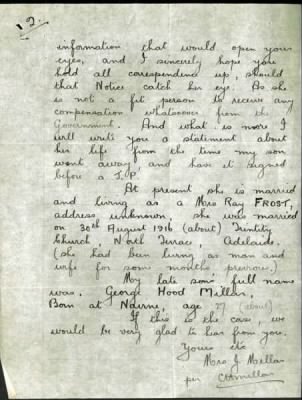 12.
information that would open your
eyes, and I sincerely hope you
hold all correspondence up, should
that Notice catch her eye. As she
is not a fit person to receive any
compensation whatsoever from the
Government. And what is more I
will write you a statement about
her life from the time my son
went away and have it signed
before a J.P.
At present she is married
and living as a Mrs Ray FROST,
address unknown, she was married
on 30th August 1916 (about) Trinity
Church, North Terrace, Adelaide.
(she had been living as man and
wife for some months previous.)
My late son's full name
was. George Hood Millar,
Born at Nairne, age 27 (about)
If this is the case we
would be very glad to hear from you.
Yours etc
Mrs J. Millar
per